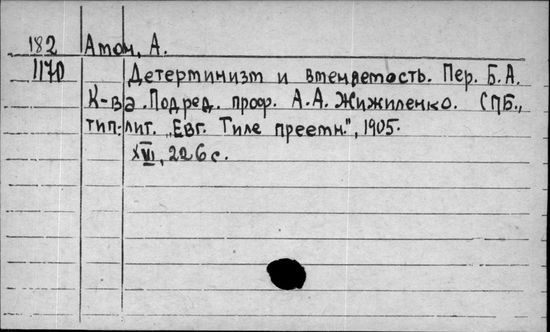 182 Амон, А.
1170 Детерминизм и вменяемость. Пер. Б.А.
К-ва. Под ред. проф. А.А. Жижиленко. СПБ.,
тип.-лит. "Евг. Тиле преемн.", 1905.
XVI, 226 с.